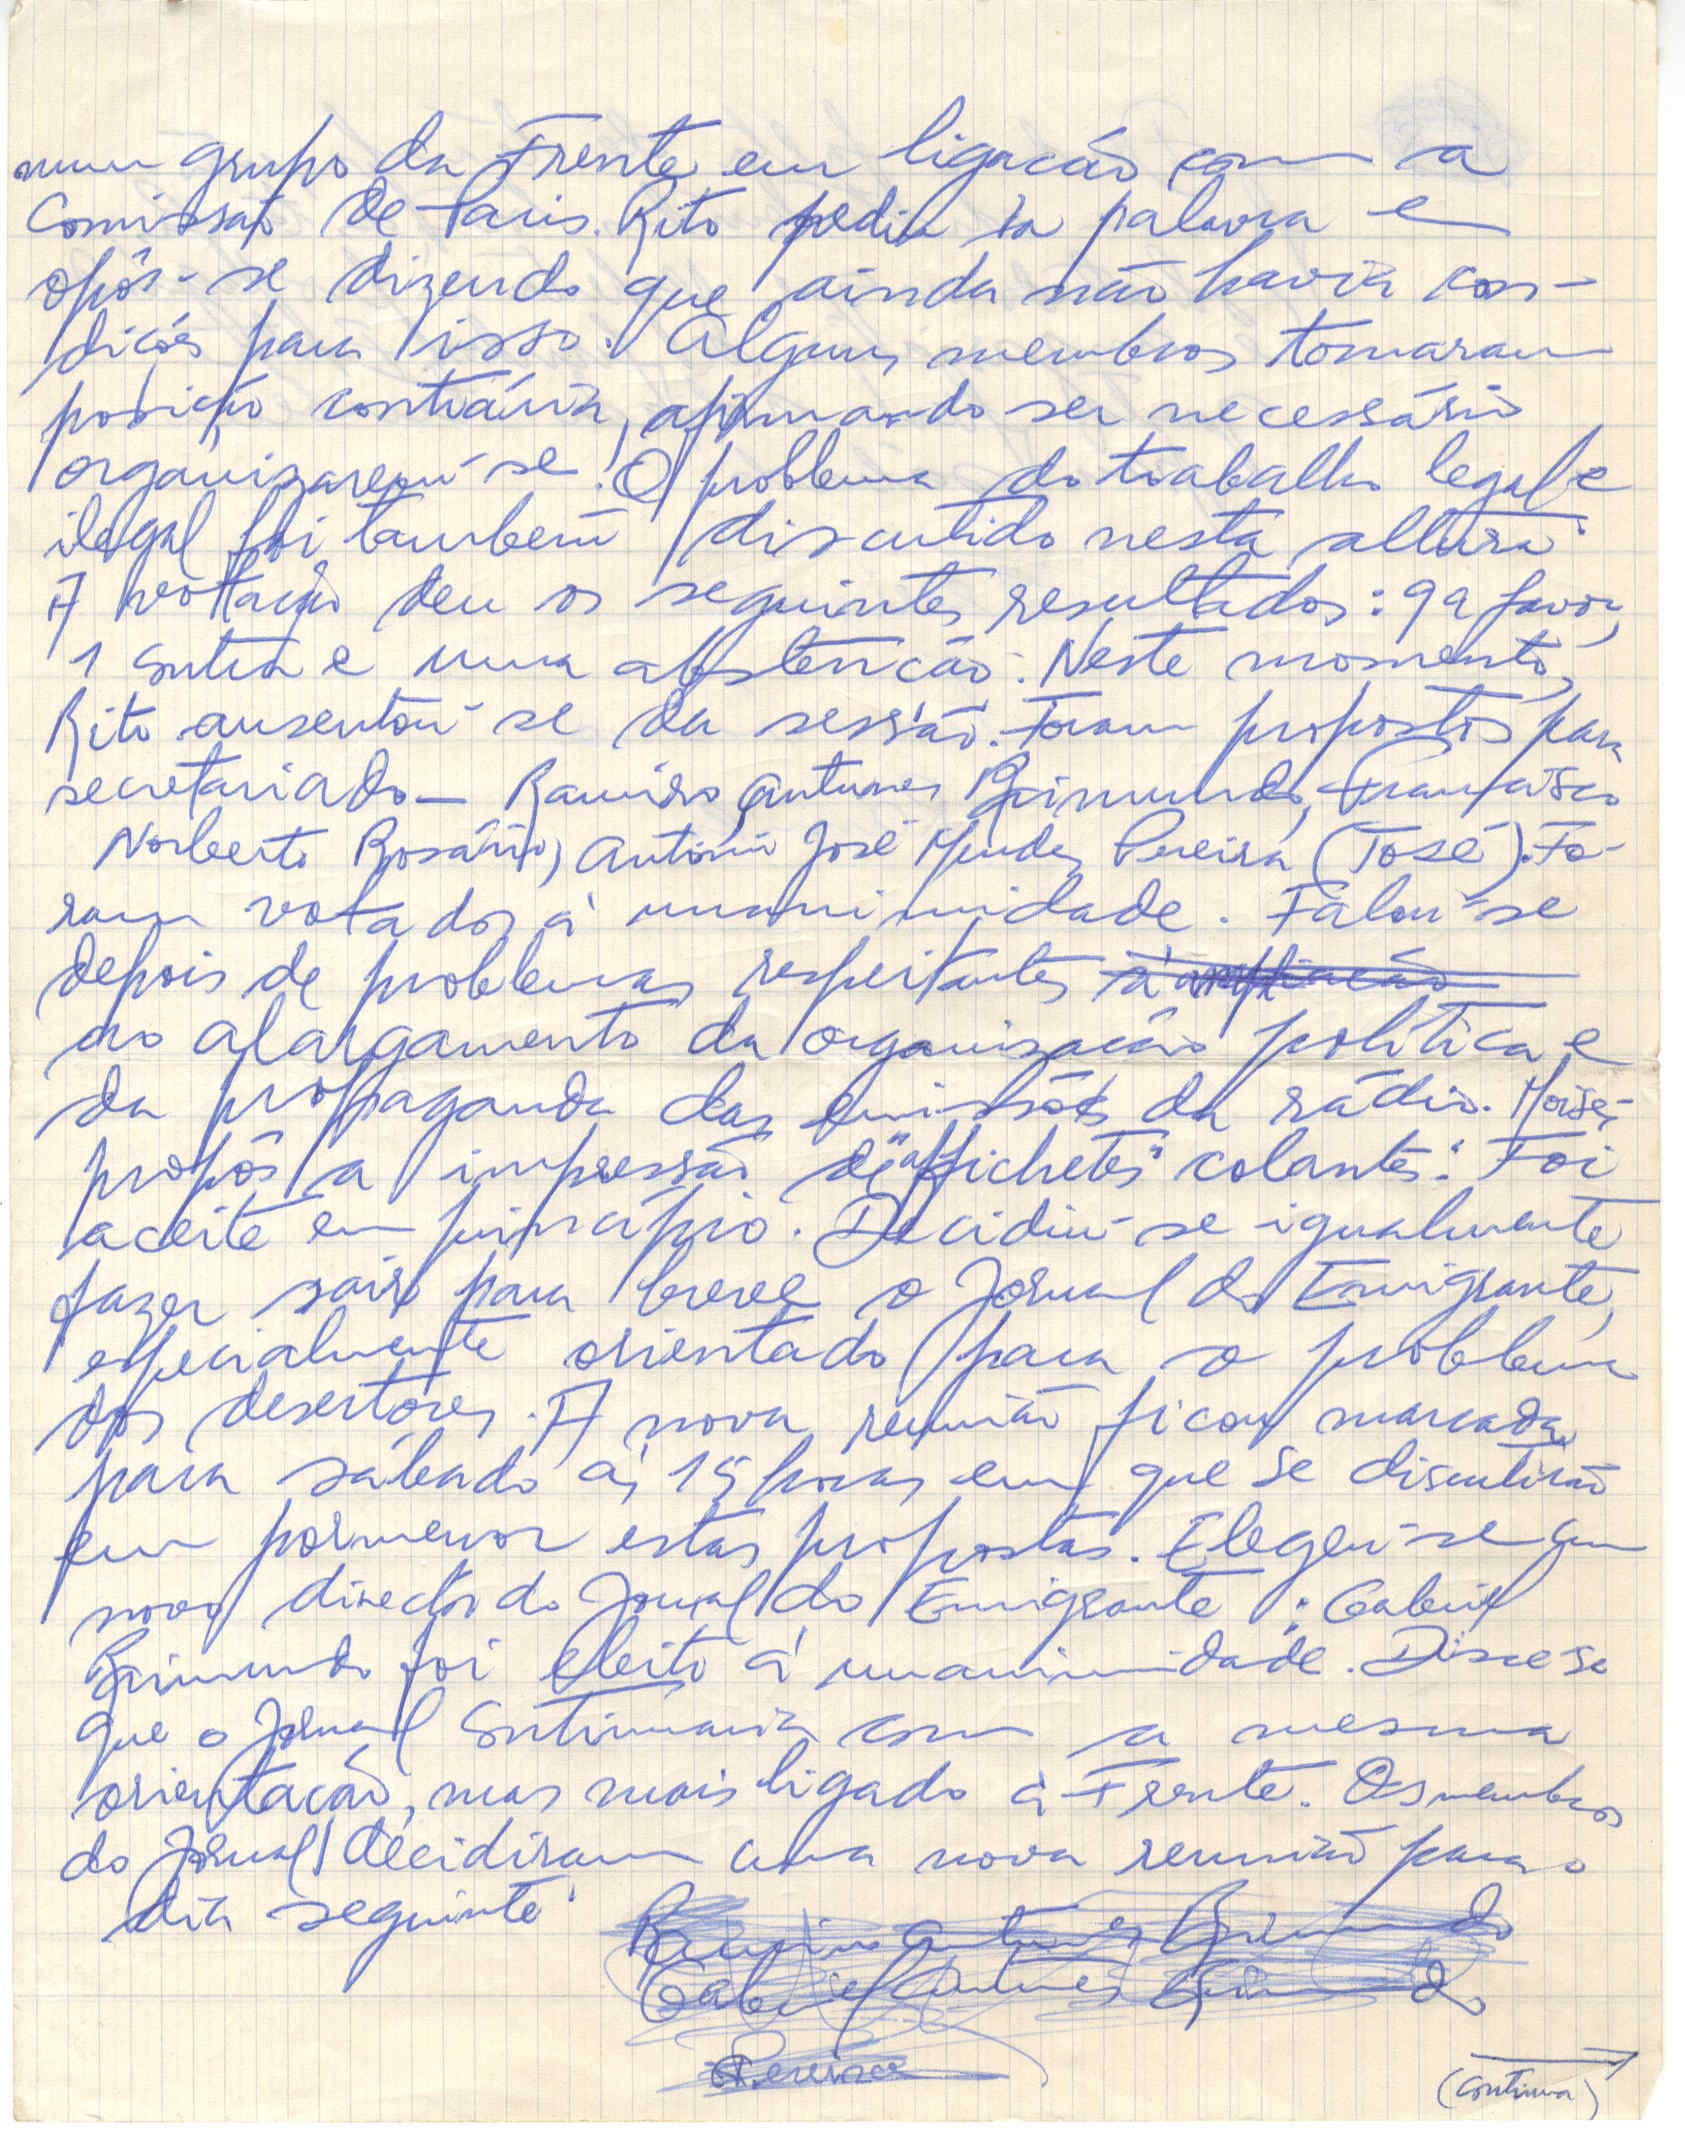 num grupo da Frente em ligação com a
Comissão de Paris. Rito pediu a palavra e
opôs-se dizendo que ainda não havia con-
dições para isso. Alguns membros tomaram
posição contrária, afirmando ser necessário
organizarem-se. O problema do trabalho legal e
ilegal foi também discutido nesta altura.
A votação deu os seguintes resultados: 9 a favor,
1 contra e uma abstenção. Neste momento,
Rito ausentou-se da sessão. Foram propostos para
secretariado — Ramiro Antunes Raimundo, Francisco
Norberto Rosário, António José Mendes Pereira (Tosé). Fo-
ram votados à unanimidade. Falou-se
depois de problemas respeitantes à ampliação
ao alargamento da organização política e
da propaganda das emissões da rádio. Moisés
propôs a impressão de "affichetes" colantes. Foi
aceite em princípio. Decidiu-se igualmente
fazer sair para breve o Jornal do Emigrante,
especialmente orientado para o problema
dos desertores. A nova reunião ficou marcada
para sábado às 15 horas em que se discutirão
em pormenor estas propostas. Elegeu-se um
novo director do Jornal do Emigrante: Gabriel
Raimundo foi eleito à unanimidade. Disse-se
que o Jornal continuaria com a mesma
orientação, mas mais ligado à Frente. Os membros
do Jornal decidiram uma nova reunião para o
dia seguinte.
Ramiro Antunes Raimundo
Gabriel Antunes Raimundo
Pereira
(continua)